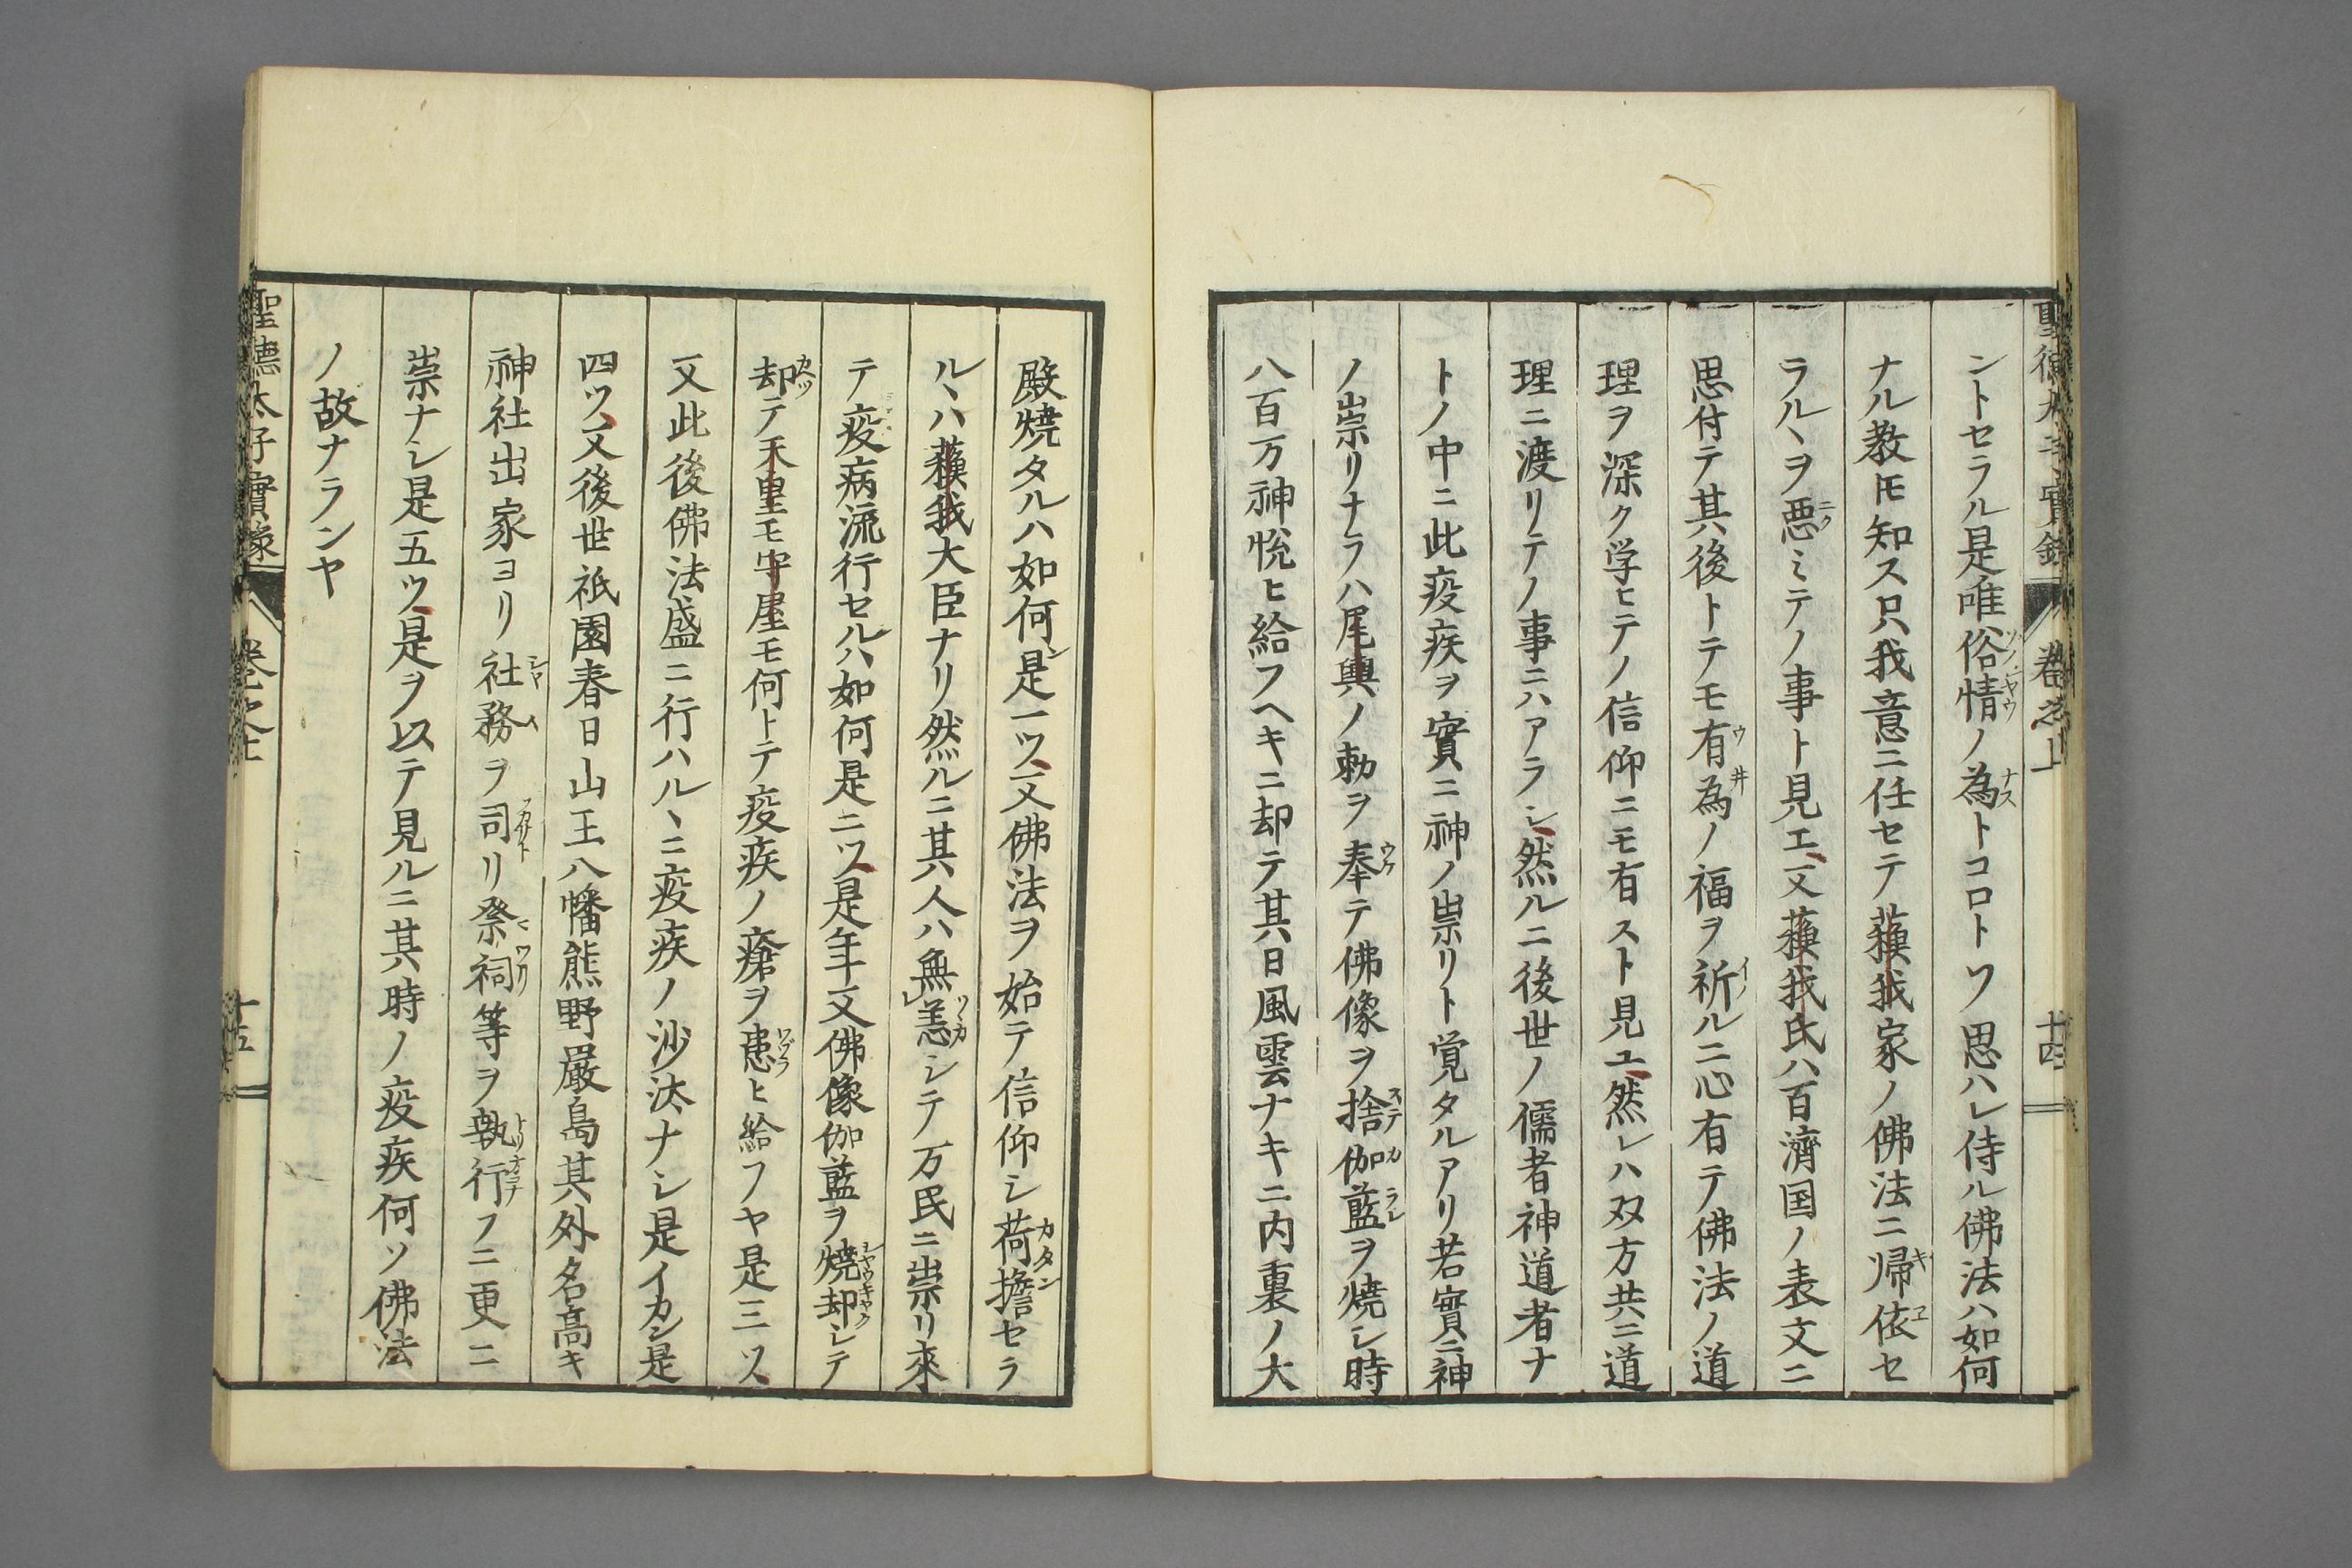 聖德太子實錄 卷之上 十四
ントセラル是唯俗情ノ為トコロトソ思ハレ侍ル佛法ハ如何
ナル教モ知ス只我意ニ任セテ蘓我家ノ佛法ニ帰依セ
ラルヽヲ悪ミテノ事ト見エ又蘓我氏ハ百濟国ノ表文ニ
思付テ其後トテモ有為ノ福ヲ祈ル二心有テ佛法ノ道
理ヲ深ク学ヒテノ信仰ニモ有スト見ユ然レハ双方共ニ道
理ニ渡リテノ事ニハアラシ然ルニ後世ノ儒者神道者ナ
トノ中ニ此疫疾ヲ實ニ神ノ祟リト覚タルアリ若實ニ神
ノ祟リナラハ尾輿ノ勅ヲ奉テ佛像ヲ捨伽藍ヲ焼シ時
八百万神悦ヒ給フヘキニ却テ其日風雲ナキニ内裏ノ大
殿焼タルハ如何ン是一ツ又佛法ヲ始テ信仰シ荷擔セラ
ルヽハ蘓我大臣ナリ然ルニ其人ハ無恙シテ万民ニ祟リ來
テ疫病流行セルハ如何是二ツ是年又佛像伽藍ヲ焼却シテ
却テ天皇モ守屋モ何トテ疫疾ノ瘡ヲ患ヒ給フヤ是三ツ
又此後佛法盛ニ行ハルヽニ疫疾ノ沙汰ナシ是イカン是
四ツ又後世祇園春日山王八幡熊野嚴島其外名高キ
神社出家ヨリ社務ヲ司リ祭祠等ヲ執行フニ更ニ
祟ナシ是五ツ是ヲ以テ見ルニ其時ノ疫疾何ソ佛法
ノ故ナランヤ
聖德太子實錄 卷之上 十五